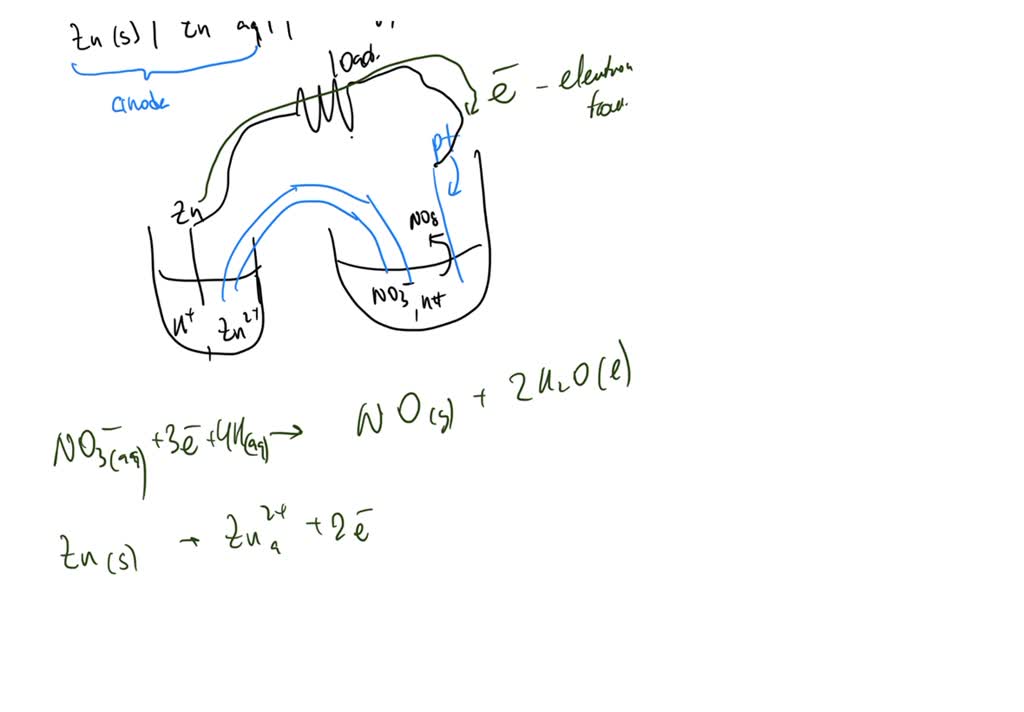 Zn (s) | Zn aq | |
anode
load.
e⁻ - electron
Zn
pt
NO₃⁻, H+
H⁺ Zn²⁺
NO₃⁻(aq) + 3e⁻ + 4H(aq) → NO(g) + 2H₂O(l)
Zn(s) → Zn²⁺a + 2e⁻